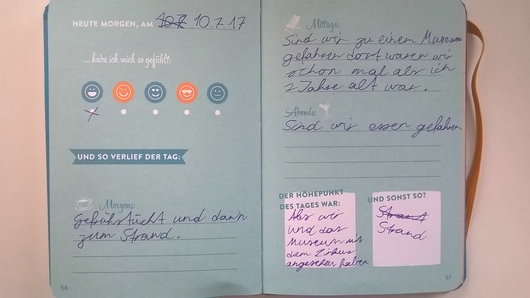 HEUTE MORGEN, AM 10.7 10.7.17
...habe ich mich so gefühlt:
UND SO VERLIEF DER TAG:
Morgens:
Gefrühstückt und dann
zum Strand.
Mittags:
Sind wir zu einem Museum
gefahren dort waren wir
schon mal als ich
2 Jahre alt war.
Abends:
Sind wir essen gefahren
DER HÖHEPUNKT
DES TAGES WAR:
Als wir
uns das
Museum mit
dem Zirkus
angesehen haben
UND SONST SO?
Strand
Strand